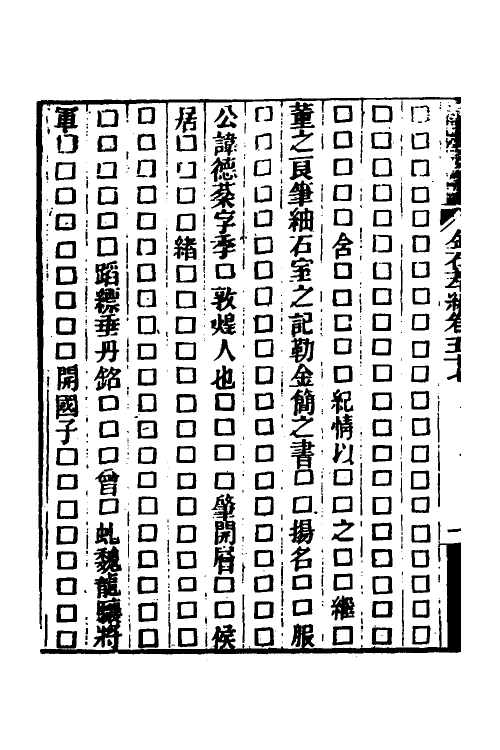 金石萃編卷五十七
一
□□□□□□□□□□□□□□□□□□□□□
□□□□□□□□□□□□□□□□□□□□□
□□□□□舍□□□□□紀情以□□之□□繼□
董之良筆紬石室之記勒金簡之書□□揚名□□服
□□□□□□□□□□□□□□□□□□□□□
公諱德棻字季□敦煌人也□□□□肇開眉□□侯
居□□□□緒□□□□□□□□□□□□□□□
□□□□□□□□□□□□□□□□□□□□□
□□□□□□蹈縹垂丹銘□□□曾□虬魏龍驤將
軍□□□□□□□□□開國子□□□□□□□□